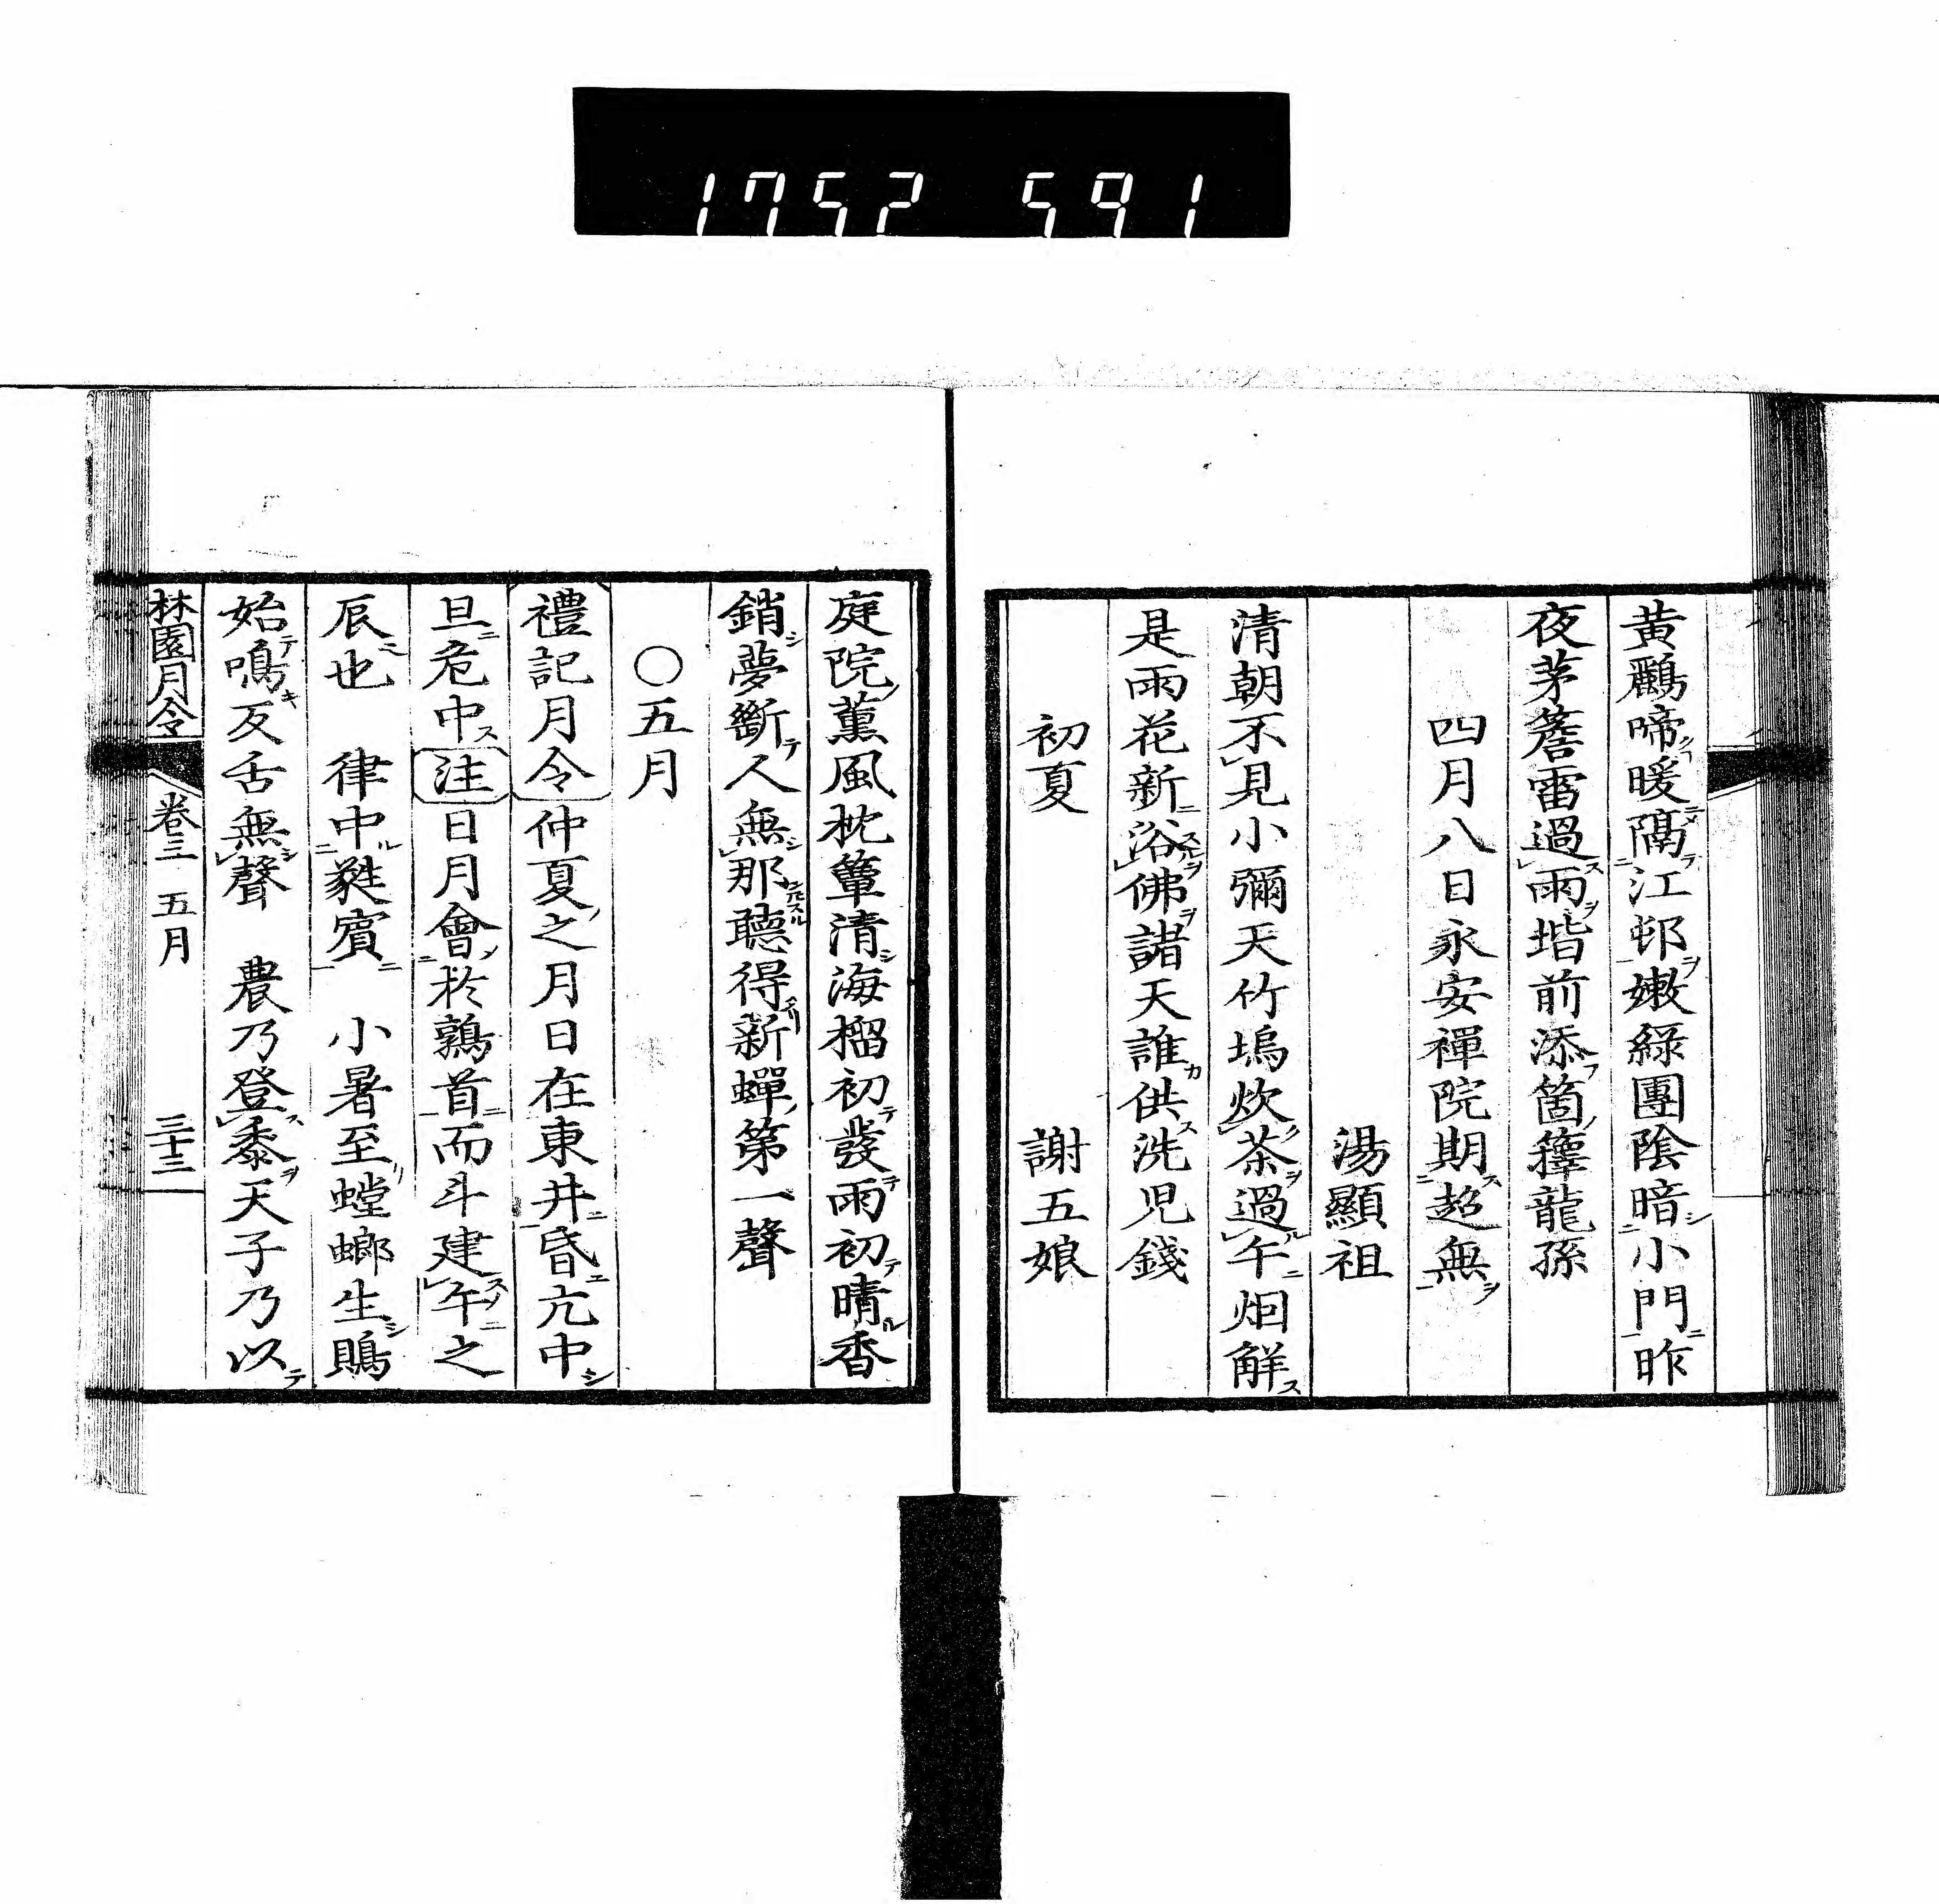 1752 591
黄鸝啼暖隔江邨嫩緑團陰暗小門昨
夜茅簷雷過雨堦前添箇籜龍孫
四月八日永安禪院期超無
湯顯祖
清朝不見小彌天竹塢炊茶過午烟觧
是雨花新浴佛諸天誰供洗児錢
初夏 謝五娘
庭院薫風枕簟清海榴初發雨初晴香
銷夢斷人無那聽得新蟬第一聲
〇五月
禮記月令仲夏之月日在東井昏亢中
旦危中注日月會於鶉首而斗建午之
辰也 律中蕤賓 小暑至螳螂生鵙
始鳴反舌無聲 農乃登黍天子乃以
林園月令 卷三 五月 三十三